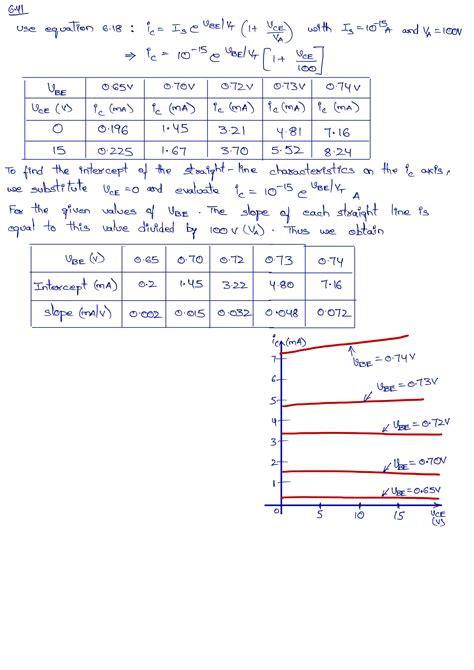 6.41
Use equation 6.18 : i_C = I_S e^{V_BE/V_T} (1 + V_CE/V_A) with I_S = 10^{-15} A and V_A = 100V
⇒ i_C = 10^{-15} e^{V_BE/V_T} [1 + V_CE/100]
V_BE 0.65V 0.70V 0.72V 0.73V 0.74V
V_CE (V) i_C (mA) i_C (mA) i_C (mA) i_C (mA) i_C (mA)
0 0.196 1.45 3.21 4.81 7.16
15 0.225 1.67 3.70 5.52 8.24
To find the intercept of the straight-line characteristics on the i_C axis,
we substitute V_CE = 0 and evaluate i_C = 10^{-15} e^{V_BE/V_T} A
For the given values of V_BE. The slope of each straight line is
equal to this value divided by 100V (V_A). Thus we obtain
V_BE (V) 0.65 0.70 0.72 0.73 0.74
Intercept (mA) 0.2 1.45 3.22 4.80 7.16
slope (mA/V) 0.002 0.015 0.032 0.048 0.072
i_C (mA)
7
V_BE = 0.74V
6
V_BE = 0.73V
5
4
V_BE = 0.72V
3
2
V_BE = 0.70V
1
V_BE = 0.65V
0 5 10 15 V_CE
(V)